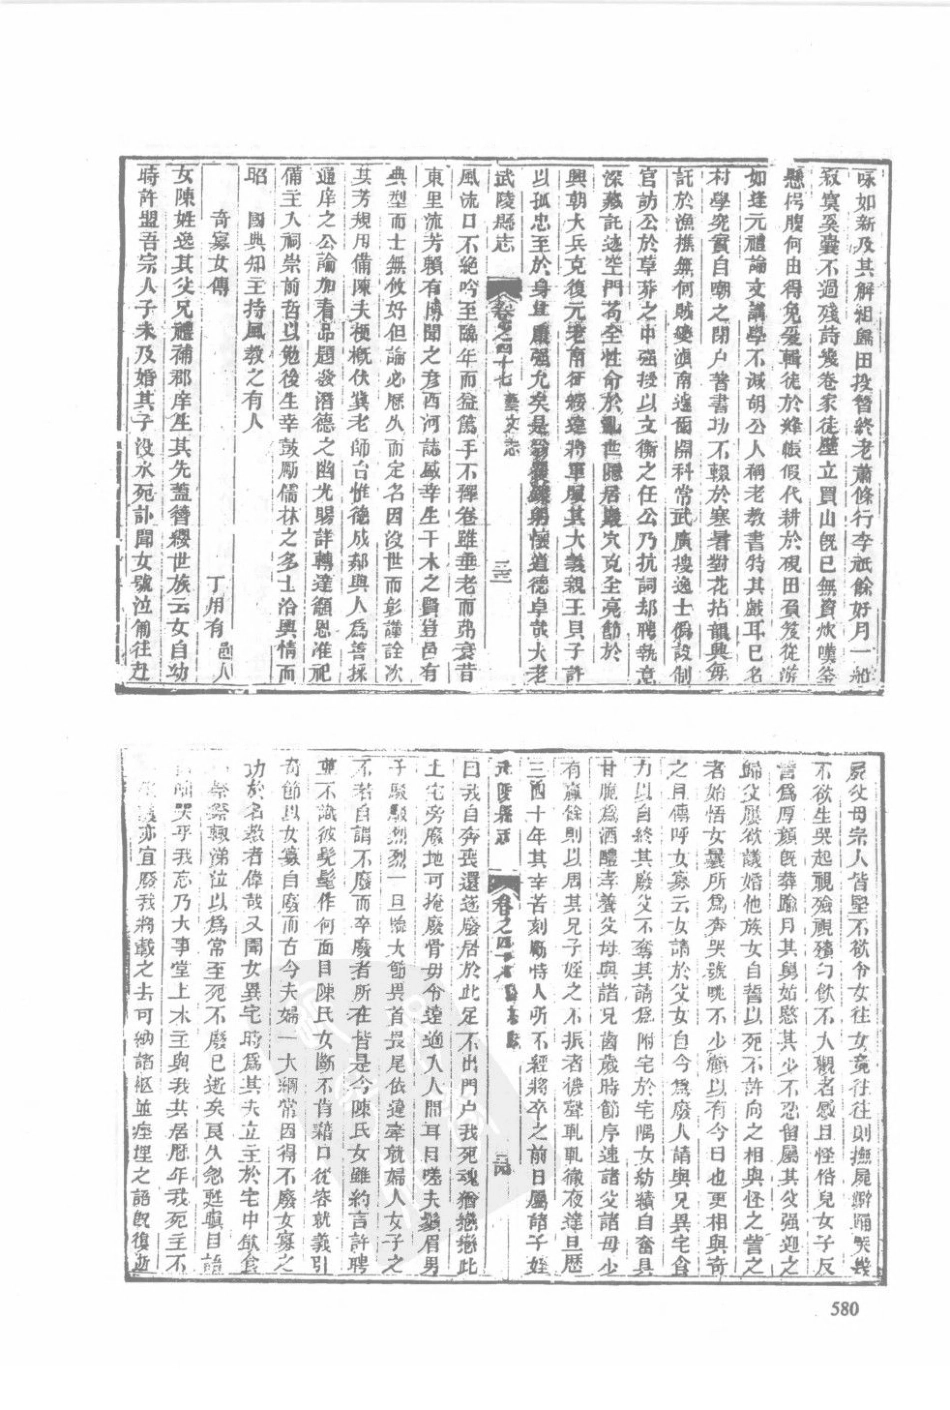 咏如新及其解組歸田投簪終老蕭條行李祇餘好月一船
寂寞奚囊不過殘詩幾卷家徒壁立買山旣已無資炊嘆釜
懸枵腹何由得免爰輯徒於絳帳假代耕於硯田負笈從游
如逢元禮論文講學不減胡公人稱老教書特其戲耳已名
村學究實自嘲之閉户著書功不輟於寒暑對花拈韻興每
託於漁樵無何賊變滇南遠爾開科常武廣摟逸士僞設制
官訪公於草莽之中强授以文衡之任公乃抗詞却聘執意
深藏託迹空門苟全性命於亂世隱居巖穴克全亮節於
興朝大兵克復元老南征綏遠將軍服其大義親王貝子許
以孤忠至於身宜廉强允矣是躬懷道德卓哉大老
武陵縣志 卷之四十七 藝文志 三三
風流口不絕吟至臨年而益篤手不釋卷雖垂老而弗衰昔
東里流芳賴有博聞之彥西河誌感幸生干木之賢豈邑有
典型而士無攸好但論必歷久而定名因没世而彰謹詮次
其芳規用備陳夫梗概伏冀老師台惟德成鄰與人爲善採
通庠之公論加看品題發潛德之幽光賜詳轉達籲恩准祀
備主入祠崇前哲以勉後生幸鼓勵儒林之多士洽輿情而
昭 國典知主持風教之有人
奇寡女傳 丁用有 邑人
女陳姓逸其父兄禮補郡庠生其先蓋簪纓世族云女自幼
時許盟吾宗人子未及婚其子没水死訃聞女號泣匍往赴
屍父母宗人皆堅不欲令女往女竟往往則撫屍擗踊哭幾
不欲生哭起視殮覩殯勺飲不入觀者感且怪俗兒女子反
訾爲厚顏旣葬踰月其舅姑愍其少不忍留屬其父强迎之
歸父屢欲議婚他族女自誓以死不許向之相與怪之訾之
者始悟女曩所爲奔哭號咷不少顧以有今日也更相與奇
之且傳呼女寡云女謂於父女自今爲廢人請與兄異宅食
力以自終其廢父不奪其請爲附宅於宅隅女紡績自奮具
甘脆爲酒醴孝養父母與諸兄齒歲時節序速諸父諸母少
有贏餘則以周其兄子姪之不振者德聲軋軋徹夜達旦歷
三四十年其辛苦刻勵恃人所不經將卒之前日屬諸子姪
武陵縣志 卷之四十七 藝文志 三四
曰我自奔喪還遂廢居於此足不出門户我死魂猶戀戀此
土宅旁廢地可掩廢骨毋令遠適入人間耳目嗟夫鬚眉男
子駿駿烈烈一旦臨大節畏首畏尾依違牽就婦人女子之
不若自謂不廢而卒廢者所在皆是今陳氏女雖約言許聘
並不識彼髡髦作何面目陳氏女斷不肯藉口從容就義引
奇節以女寡自廢而古今夫婦一大綱常因得不廢女寡之
功於名教者偉哉又聞女異宅時爲其夫立主於宅中飲食
祭輒涕泣以爲常至死不廢已逝矣良久忽甦瞋目語
哭乎我忘乃大事堂上木主與我共居歷年我死主不
亦宜廢我將載之去可納諸柩並瘞埋之語旣復逝
580